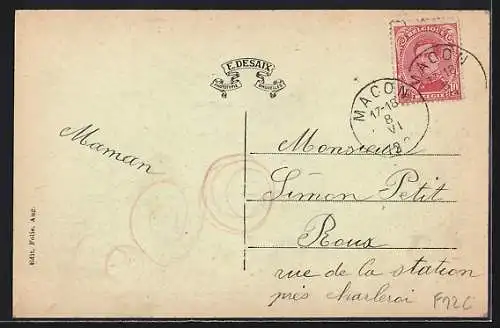 E. DESAIX
BELGIQUE
MACON
MACON
17-18
8
VI
BELGIË
Maman
Monsieur
Simon Petit
Roux
rue de la station
près charleroi
F126
Edit. Folie, Aug.